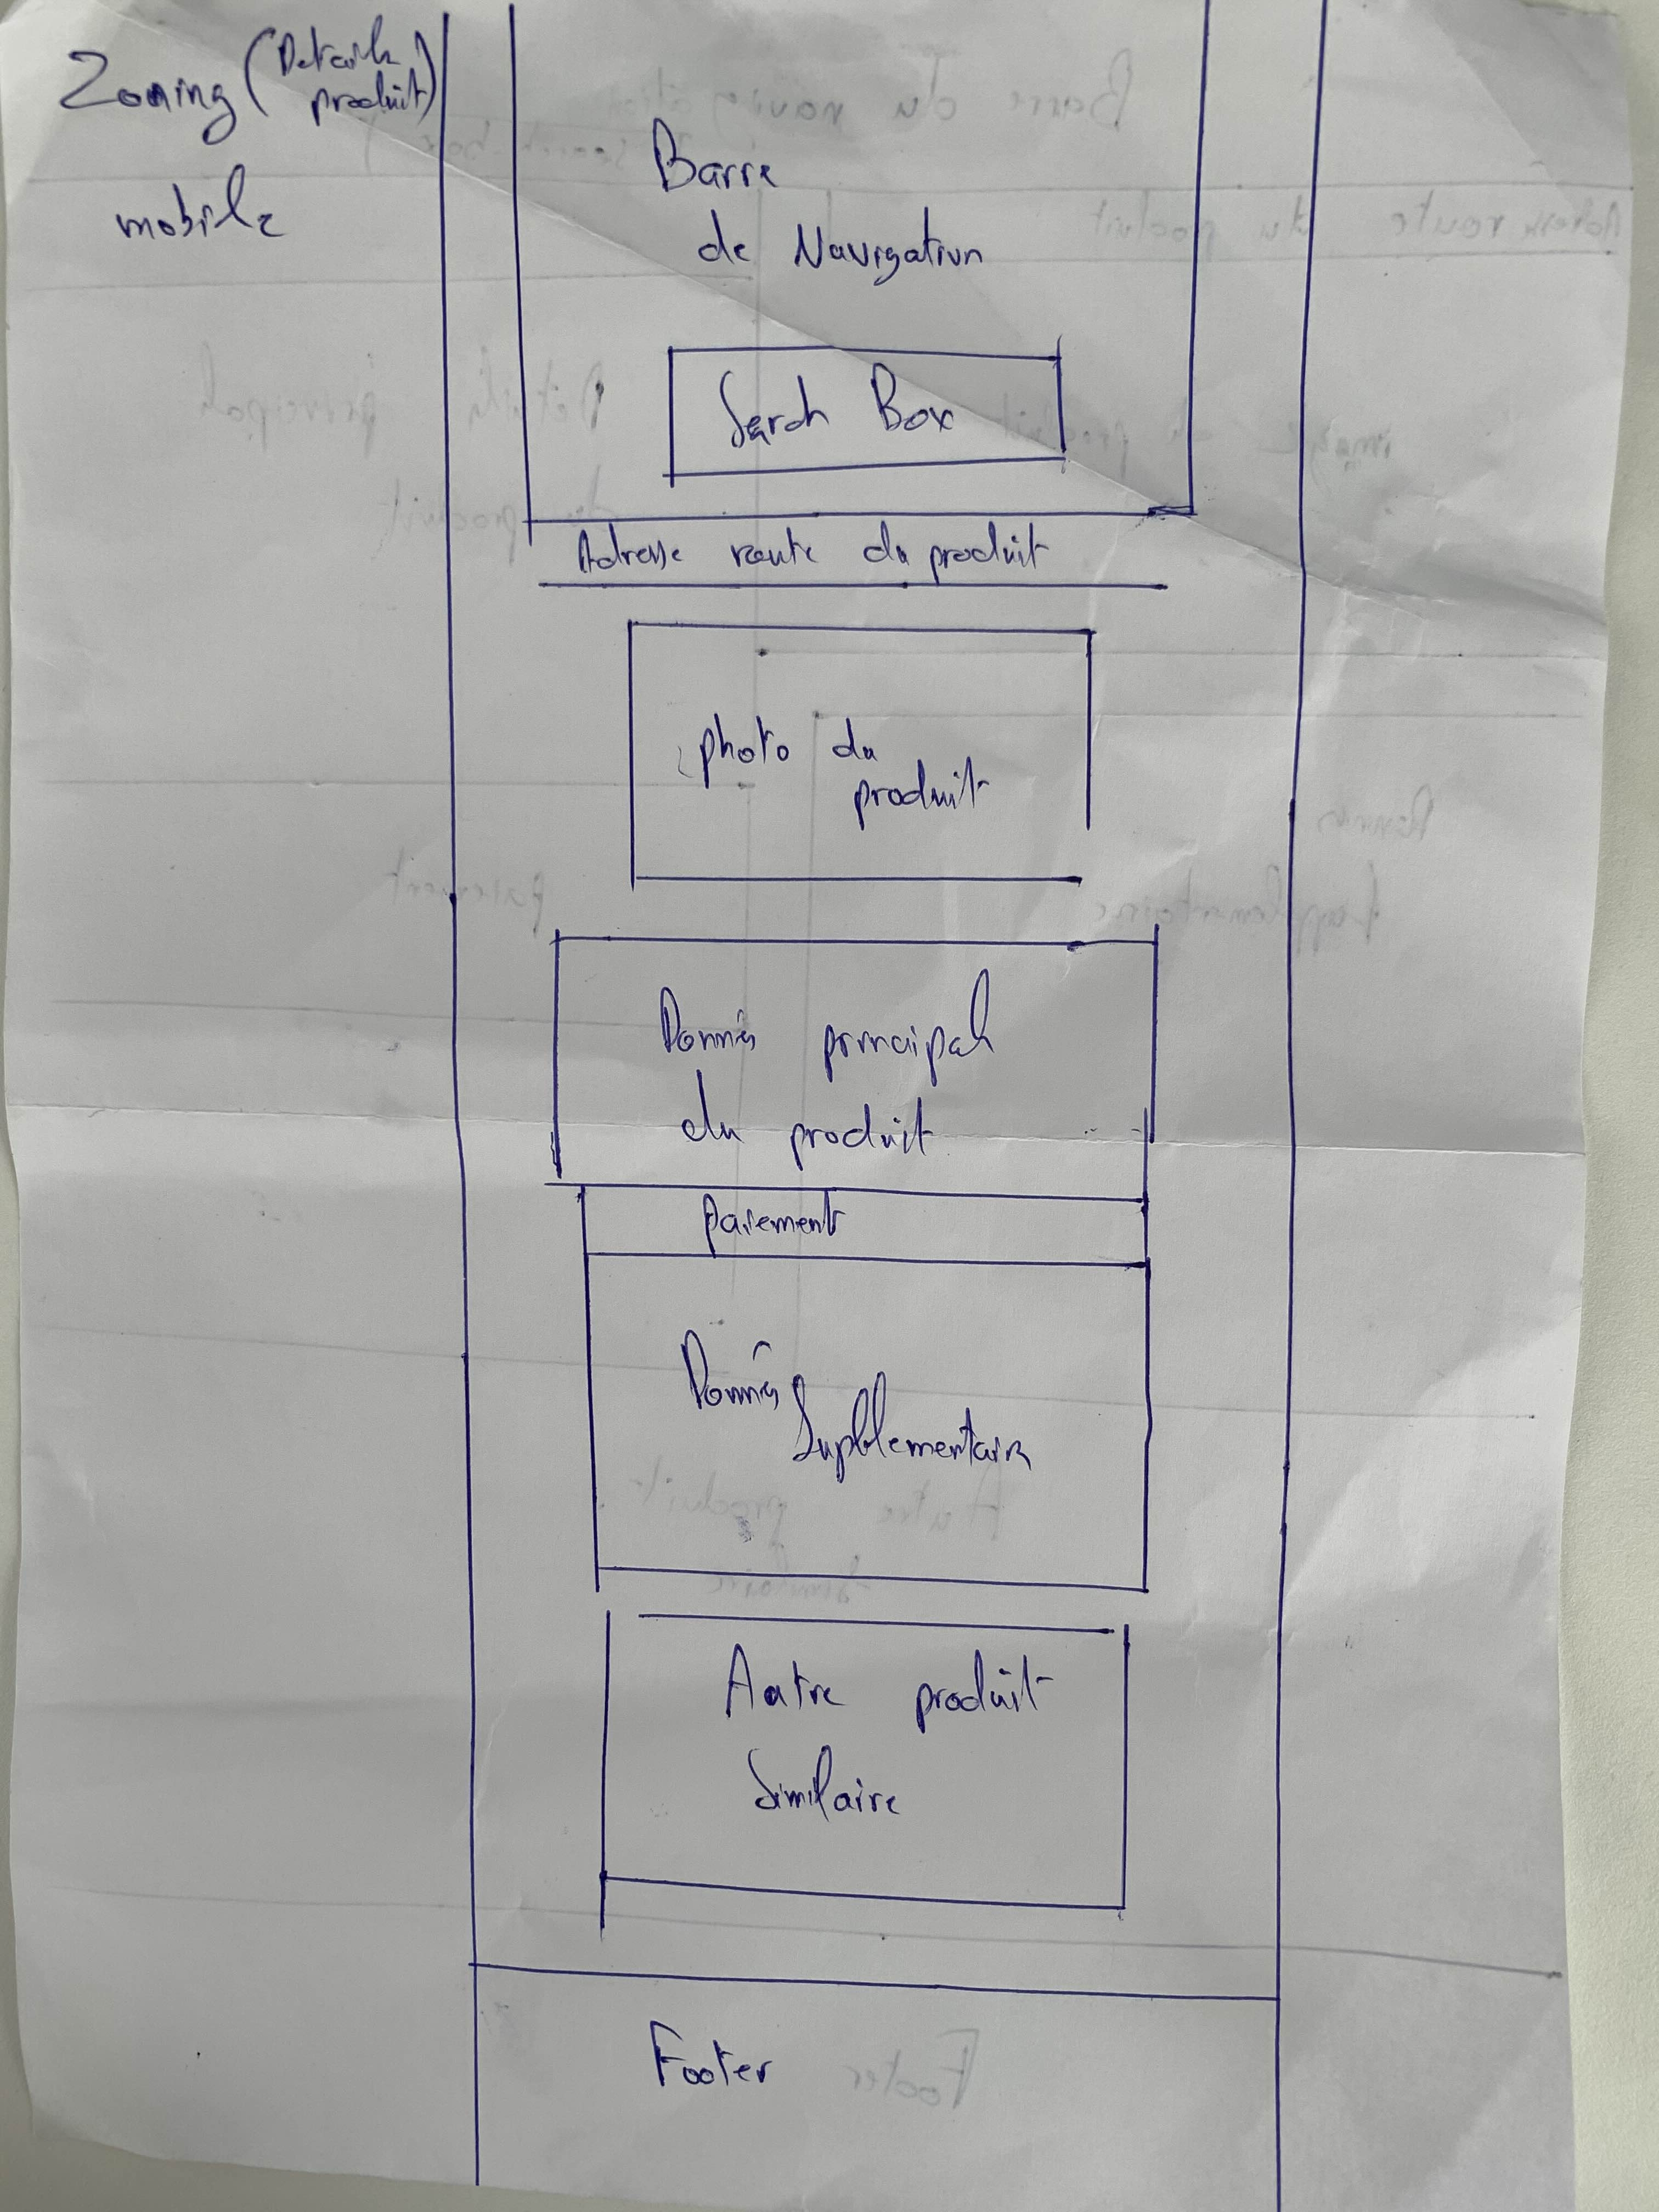 Zoning (Details
produit)
mobile
Barre
de Navigation
Serch Box
Adresse route du produit
photo du
produit
Donnés principals
du produit
paiement
Donnés
Supplementairs
Autre produit
Similaire
Footer